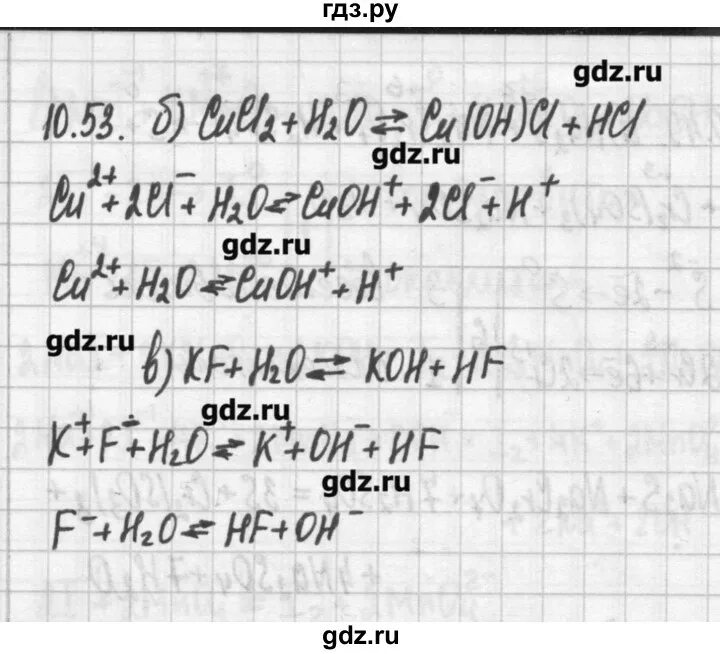 гдз.ру
gdz.ru
10.53. б) CuCl₂ + H₂O ⇄ Cu(OH)Cl + HCl
gdz.ru
Cu²⁺ + 2Cl⁻ + H₂O ⇄ CuOH⁺ + 2Cl⁻ + H⁺
gdz.ru
Cu²⁺ + H₂O ⇄ CuOH⁺ + H⁺
gdz.ru
в) KF + H₂O ⇄ KOH + HF
gdz.ru
K⁺ + F⁻ + H₂O ⇄ K⁺ + OH⁻ + HF
gdz.ru
F⁻ + H₂O ⇄ HF + OH⁻
gdz.ru